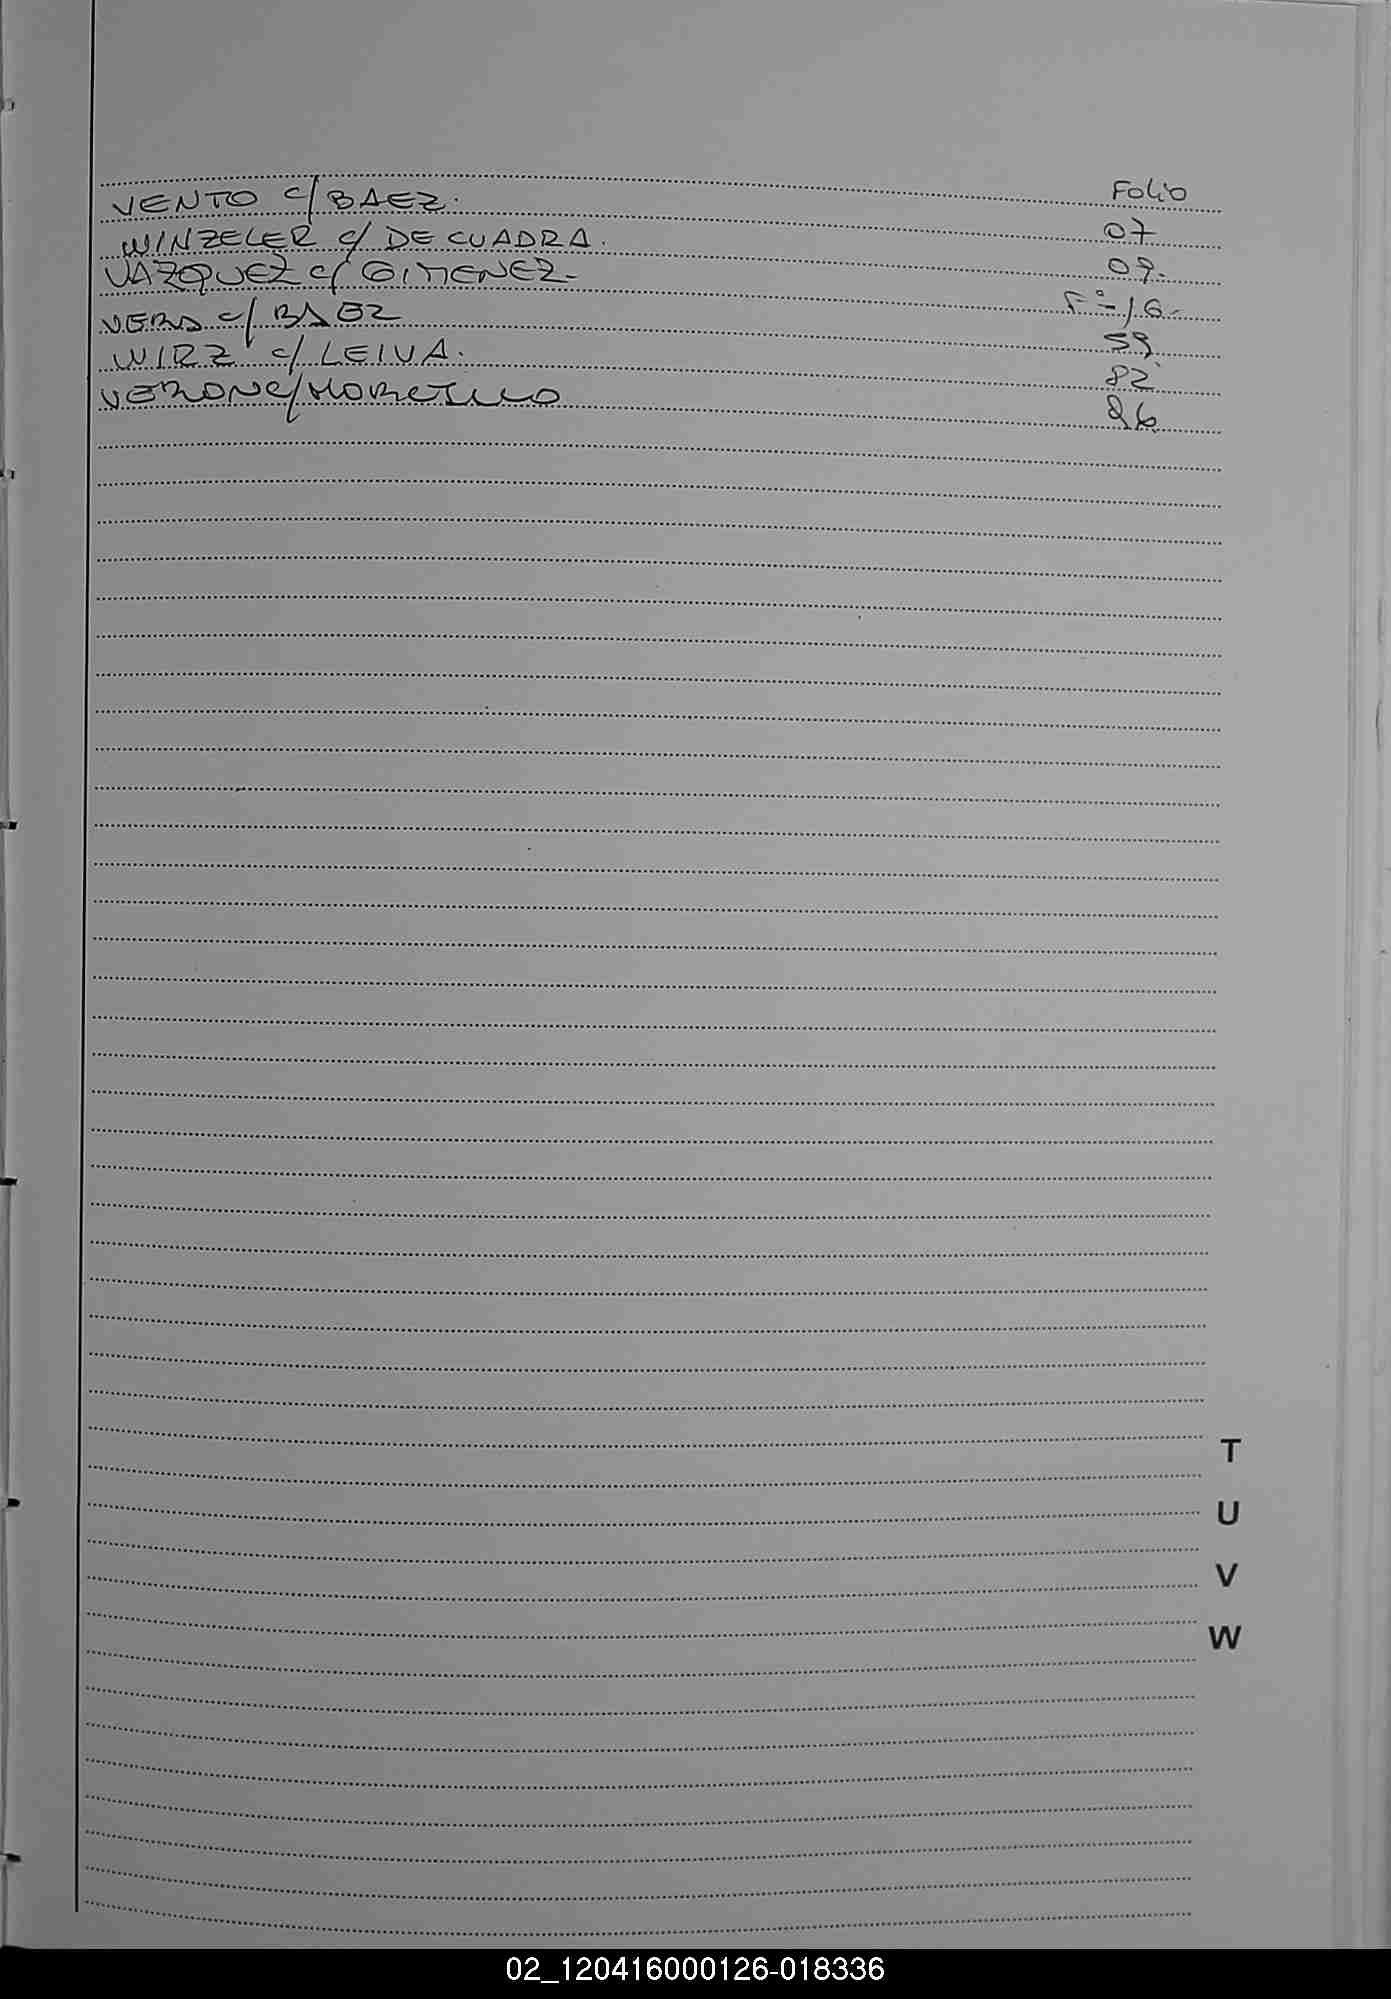 Folio
VENTO c/ BAEZ. 07
WINZELER c/ DE CUADRA. 09.
VAZQUEZ c/ GIMENEZ.- Fº-16-
VERA c/ BAEZ 59
WIRZ c/ LEIVA. 82
VERON c/ 86
T
U
V
W
02_120416000126-018336